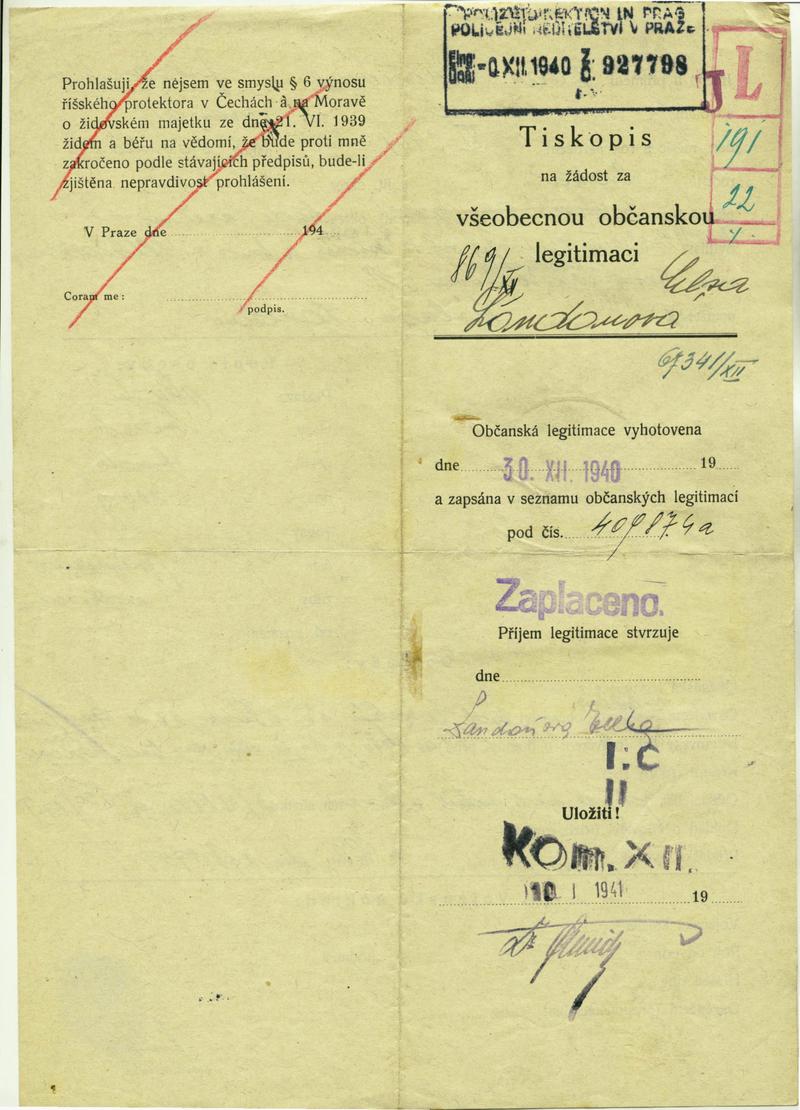 Prohlašuji, že nejsem ve smyslu § 6 výnosu
říšského protektora v Čechách a na Moravě
o židovském majetku ze dne 21. VI. 1939
židem a béřu na vědomí, že bude proti mně
zakročeno podle stávajících předpisů, bude-li
zjištěna nepravdivost prohlášení.
V Praze dne 194
Coram me:
podpis.
POLIZEIDIREKTION IN PRAG
POLICEJNÍ ŘEDITELSTVÍ V PRAZE
XII. 1940 927798
J L
191
22
Tiskopis
na žádost za
všeobecnou občanskou
legitimaci
869/XII
Elsa
Landauová
67341/XII
Občanská legitimace vyhotovena
dne 30. XII. 1940 19
a zapsána v seznamu občanských legitimací
pod čís.
Zaplaceno.
Příjem legitimace stvrzuje
dne
Landauová
I.C
II
Uložiti!
Kom. XII.
10 I 1941 19
Dr